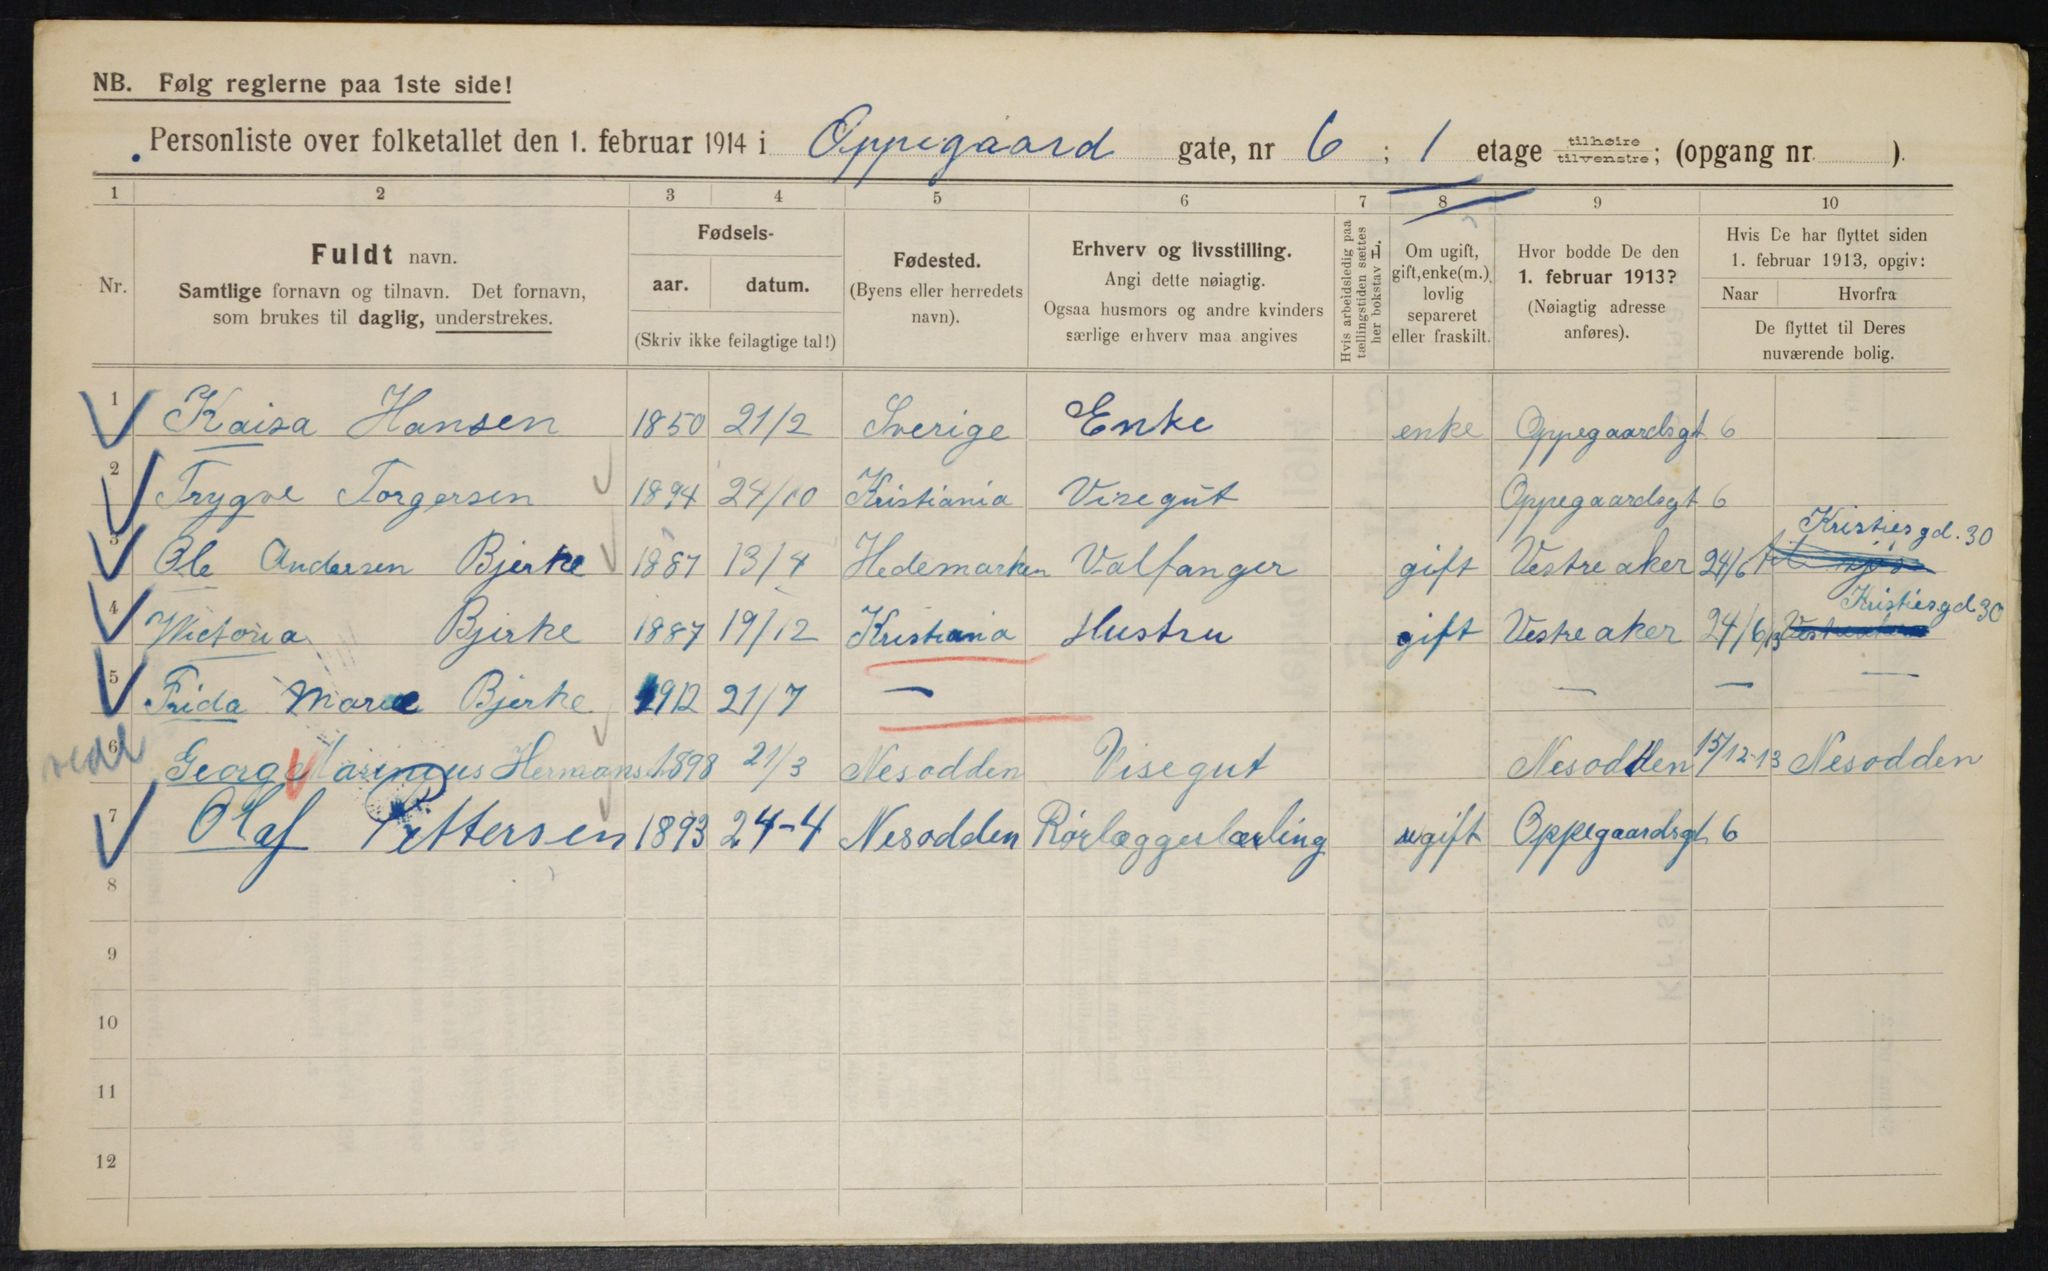 NB. Følg reglerne paa 1ste side!
Personliste over folketallet den 1. februar 1914 i Oppegaard gate, nr 6 ; 1 etage tilhøire tilvenstre; (opgang nr. ).
1 2 3 4 5 6 7 8 9 10
Nr.
Fuldt navn.
Samtlige fornavn og tilnavn. Det fornavn,
som brukes til daglig, understrekes.
Fødsels-
aar. datum.
(Skriv ikke feilagtige tal!)
Fødested.
(Byens eller herredets
navn).
Erhverv og livsstilling.
Angi dette nøiagtig.
Ogsaa husmors og andre kvinders
særlige erhverv maa angives
Hvis arbeidsledig paa
tællingstiden sættes
her bokstav L.
Om ugift,
gift, enke(m.),
lovlig
separeret
eller fraskilt.
Hvor bodde De den
1. februar 1913?
(Nøiagtig adresse
anføres).
Hvis De har flyttet siden
1. februar 1913, opgiv:
Naar Hvorfra
De flyttet til Deres
nuværende bolig.
1 Kaisa Hansen 1850 21/2 Sverige Enke enke Oppegaardsgt 6
2 Trygve Torgersen 1894 24/10 Kristiania Visegut Oppegaardsgt 6
Kristiesgd. 30
3 Ole Andersen Bjerke 1887 13/4 Hedemarken Valfanger gift Vestre aker 24/6
Kristiesgd 30
4 Victoria Bjerke 1887 19/12 Kristiania Hustru gift Vestre aker 24/6 13 Vestreaker
5 Frida Marie Bjerke 1912 21/7 — — — —
6 George Marinius Hermans 1898 21/3 Nesodden Visegut Nesodden 15/12-13 Nesodden
7 Olaf Pettersen 1893 24-4 Nesodden Rørlæggerlærling ugift Oppegaardsgt 6
8
9
10
11
12